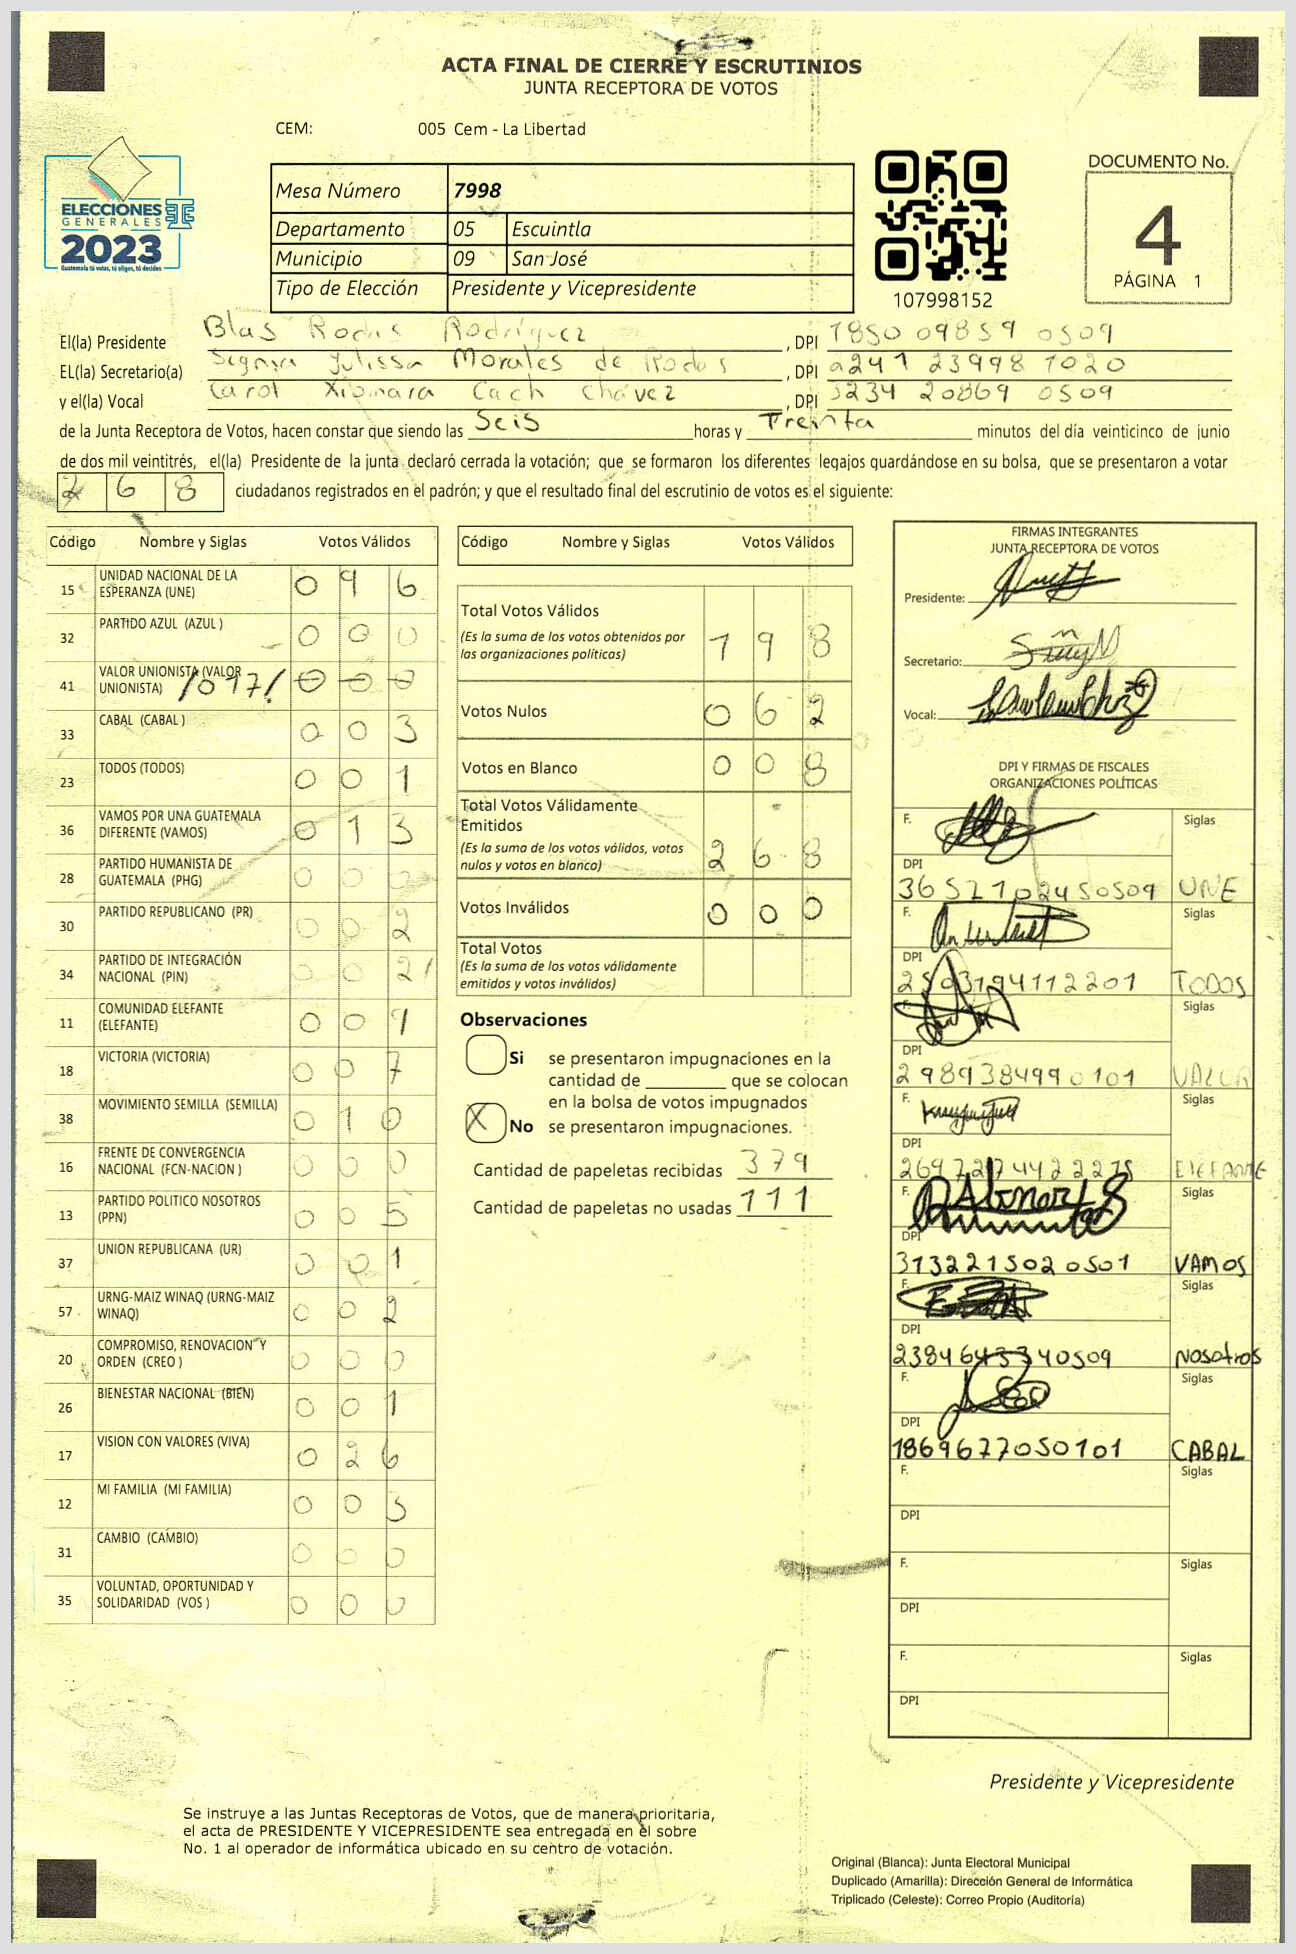 ACTA FINAL DE CIERRE Y ESCRUTINIOS
JUNTA RECEPTORA DE VOTOS
CEM: 005 Cem - La Libertad
ELECCIONES
GENERALES
2023
Guatemala tú votas, tú eliges, tú decides
Mesa Número 7998
Departamento 05 Escuintla
Municipio 09 San José
Tipo de Elección Presidente y Vicepresidente
107998152
DOCUMENTO No.
4
PÁGINA 1
El(la) Presidente Blas Rodas Rodríguez, DPI 1850 09859 0509
EL(la) Secretario(a) Yulissa Morales de Rodas, DPI 2241 23998 1020
y el(la) Vocal Carol Xiomara Cach Chávez, DPI 3234 20869 0509
de la Junta Receptora de Votos, hacen constar que siendo las Seis horas y Treinta minutos del día veinticinco de junio
de dos mil veintitrés, el(la) Presidente de la junta declaró cerrada la votación; que se formaron los diferentes legajos guardándose en su bolsa, que se presentaron a votar
268 ciudadanos registrados en el padrón; y que el resultado final del escrutinio de votos es el siguiente:
Código Nombre y Siglas Votos Válidos
15 UNIDAD NACIONAL DE LA ESPERANZA (UNE) 0 9 6
32 PARTIDO AZUL (AZUL ) 0 0 0
41 VALOR UNIONISTA (VALOR UNIONISTA) /017/ 0 0 0
33 CABAL (CABAL ) 0 0 3
23 TODOS (TODOS) 0 0 1
36 VAMOS POR UNA GUATEMALA DIFERENTE (VAMOS) 0 1 3
28 PARTIDO HUMANISTA DE GUATEMALA (PHG) 0 0 0
30 PARTIDO REPUBLICANO (PR) 0 0 2
34 PARTIDO DE INTEGRACIÓN NACIONAL (PIN) 0 0 2
11 COMUNIDAD ELEFANTE (ELEFANTE) 0 0 9
18 VICTORIA (VICTORIA) 0 0 7
38 MOVIMIENTO SEMILLA (SEMILLA) 0 1 0
16 FRENTE DE CONVERGENCIA NACIONAL (FCN-NACION ) 0 0 0
13 PARTIDO POLITICO NOSOTROS (PPN) 0 0 5
37 UNION REPUBLICANA (UR) 0 0 1
57 URNG-MAIZ WINAQ (URNG-MAIZ WINAQ) 0 0 2
20 COMPROMISO, RENOVACION Y ORDEN (CREO ) 0 0 0
26 BIENESTAR NACIONAL (BIEN) 0 0 1
17 VISION CON VALORES (VIVA) 0 2 6
12 MI FAMILIA (MI FAMILIA) 0 0 3
31 CAMBIO (CAMBIO) 0 0 0
35 VOLUNTAD, OPORTUNIDAD Y SOLIDARIDAD (VOS ) 0 0 0
Código Nombre y Siglas Votos Válidos
Total Votos Válidos 1 9 8
(Es la suma de los votos obtenidos por
las organizaciones políticas)
Votos Nulos 0 6 2
Votos en Blanco 0 0 8
Total Votos Válidamente
Emitidos 2 6 8
(Es la suma de los votos válidos, votos
nulos y votos en blanco)
Votos Inválidos 0 0 0
Total Votos
(Es la suma de los votos válidamente
emitidos y votos inválidos)
Observaciones
Si se presentaron impugnaciones en la
cantidad de ________ que se colocan
en la bolsa de votos impugnados
X No se presentaron impugnaciones.
Cantidad de papeletas recibidas 379
Cantidad de papeletas no usadas 111
FIRMAS INTEGRANTES
JUNTA RECEPTORA DE VOTOS
Presidente:
Secretario:
Vocal:
DPI Y FIRMAS DE FISCALES
ORGANIZACIONES POLÍTICAS
F. Siglas
DPI
3657102450509 UNE
F. Siglas
DPI
2503194112201 TODOS
F. Siglas
DPI
2989384990101 VALOR
F. Siglas
DPI
ELEFANTE
F. Siglas
DPI
3132215020501 VAMOS
F. Siglas
DPI
2384643340509 NOSOTROS
F. Siglas
DPI
1869677050101 CABAL
F. Siglas
DPI
F. Siglas
DPI
F. Siglas
DPI
Presidente y Vicepresidente
Se instruye a las Juntas Receptoras de Votos, que de manera prioritaria,
el acta de PRESIDENTE Y VICEPRESIDENTE sea entregada en el sobre
No. 1 al operador de informática ubicado en su centro de votación.
Original (Blanca): Junta Electoral Municipal
Duplicado (Amarilla): Dirección General de Informática
Triplicado (Celeste): Correo Propio (Auditoría)